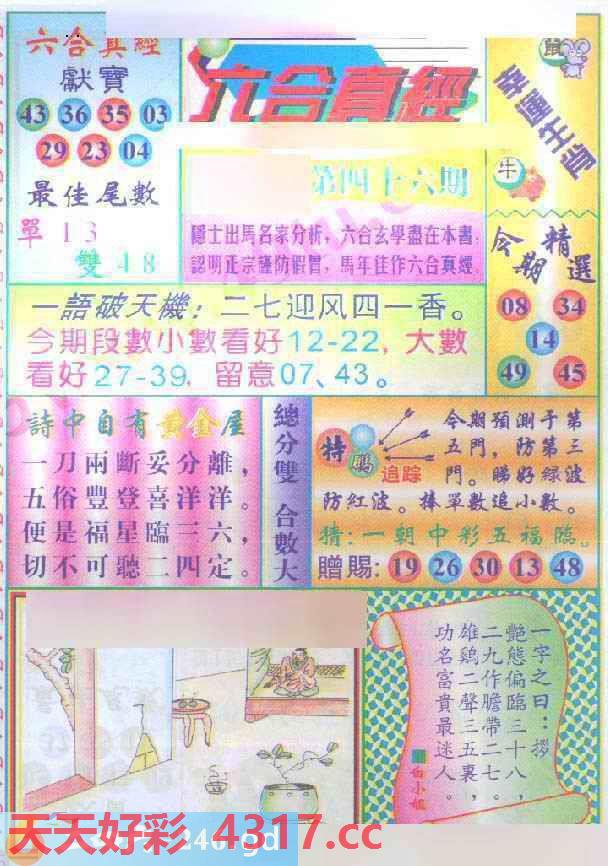 六合真經
獻寶
43 36 35 03
29 23 04
最佳尾數
單13
雙48
六合真經
第四十六期
隱士出馬名家分析，六合玄學盡在本書；
認明正宗謹防假冒，馬年佳作六合真經.
鼠
幸運生肖
牛
今期精選
08 34
14
49 45
一語破天機：二七迎风四一香。
今期段數小數看好12-22，大數
看好27-39，留意07、43。
詩中自有黃金屋
一刀兩斷妥分離，
五俗豐登喜洋洋。
便是福星臨三六，
切不可聽二四定。
總分雙 合數大
特碼
追踪
今期預測于第
五門，防第三
門。睇好綠波
防紅波。棒單數追小數。
猜：一朝中彩五福臨。
贈賜：19 26 30 13 48
一字之曰：拶
艷態偏臨三十八，
二九作膽帶二七。
雄鷄二聲三五裏，
功名富貴最迷人。
白小姐
天天好彩 4317.cc
246.gd